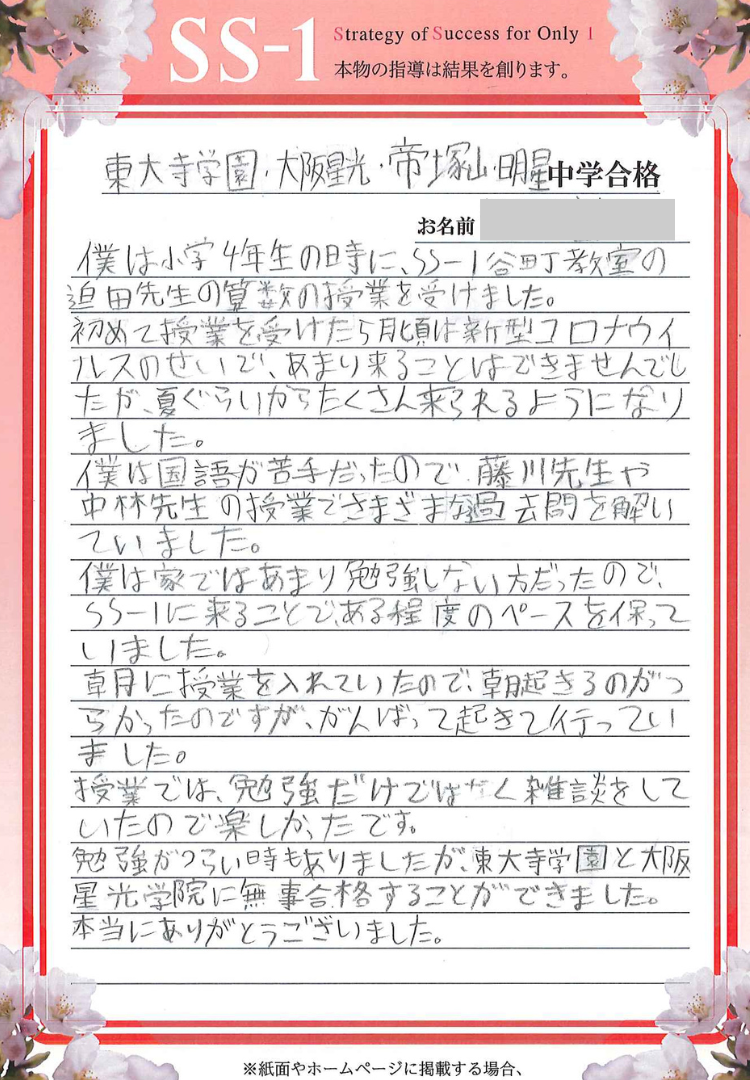 SS-1
Strategy of Success for Only 1
本物の指導は結果を創ります。
東大寺学園・大阪星光・帝塚山・明星中学合格
お名前
僕は小学4年生の時に、SS-1谷町教室の
迫田先生の算数の授業を受けました。
初めて授業を受けたら月頃は新型コロナウイ
ルスのせいで、あまり来ることはできませんでし
たが、夏ぐらいからたくさん来られるようになり
ました。
僕は国語が苦手だったので、藤川先生や
中林先生の授業でさまざまな過去問を解い
ていました。
僕は家ではあまり勉強しない方だったので、
SS-1に来ることで、ある程度のペースを保って
いました。
朝月に授業を入れていたので、朝起きるのがつ
らかったのですが、がんばって起きて行ってい
ました。
授業では、勉強だけではなく雑談をして
いたので楽しかったです。
勉強がつらい時もありましたが、東大寺学園と大阪
星光学院に無事合格することができました。
本当にありがとうございました。
※紙面やホームページに掲載する場合、